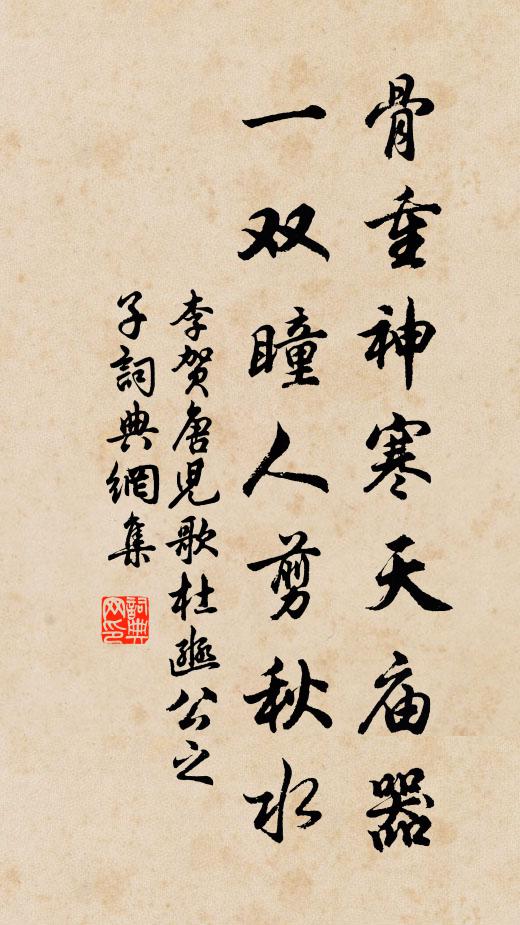 骨重神寒天庙器
一双瞳人剪秋水
李贺唐児歌杜豳公之
子詞典網集
詞典
网印